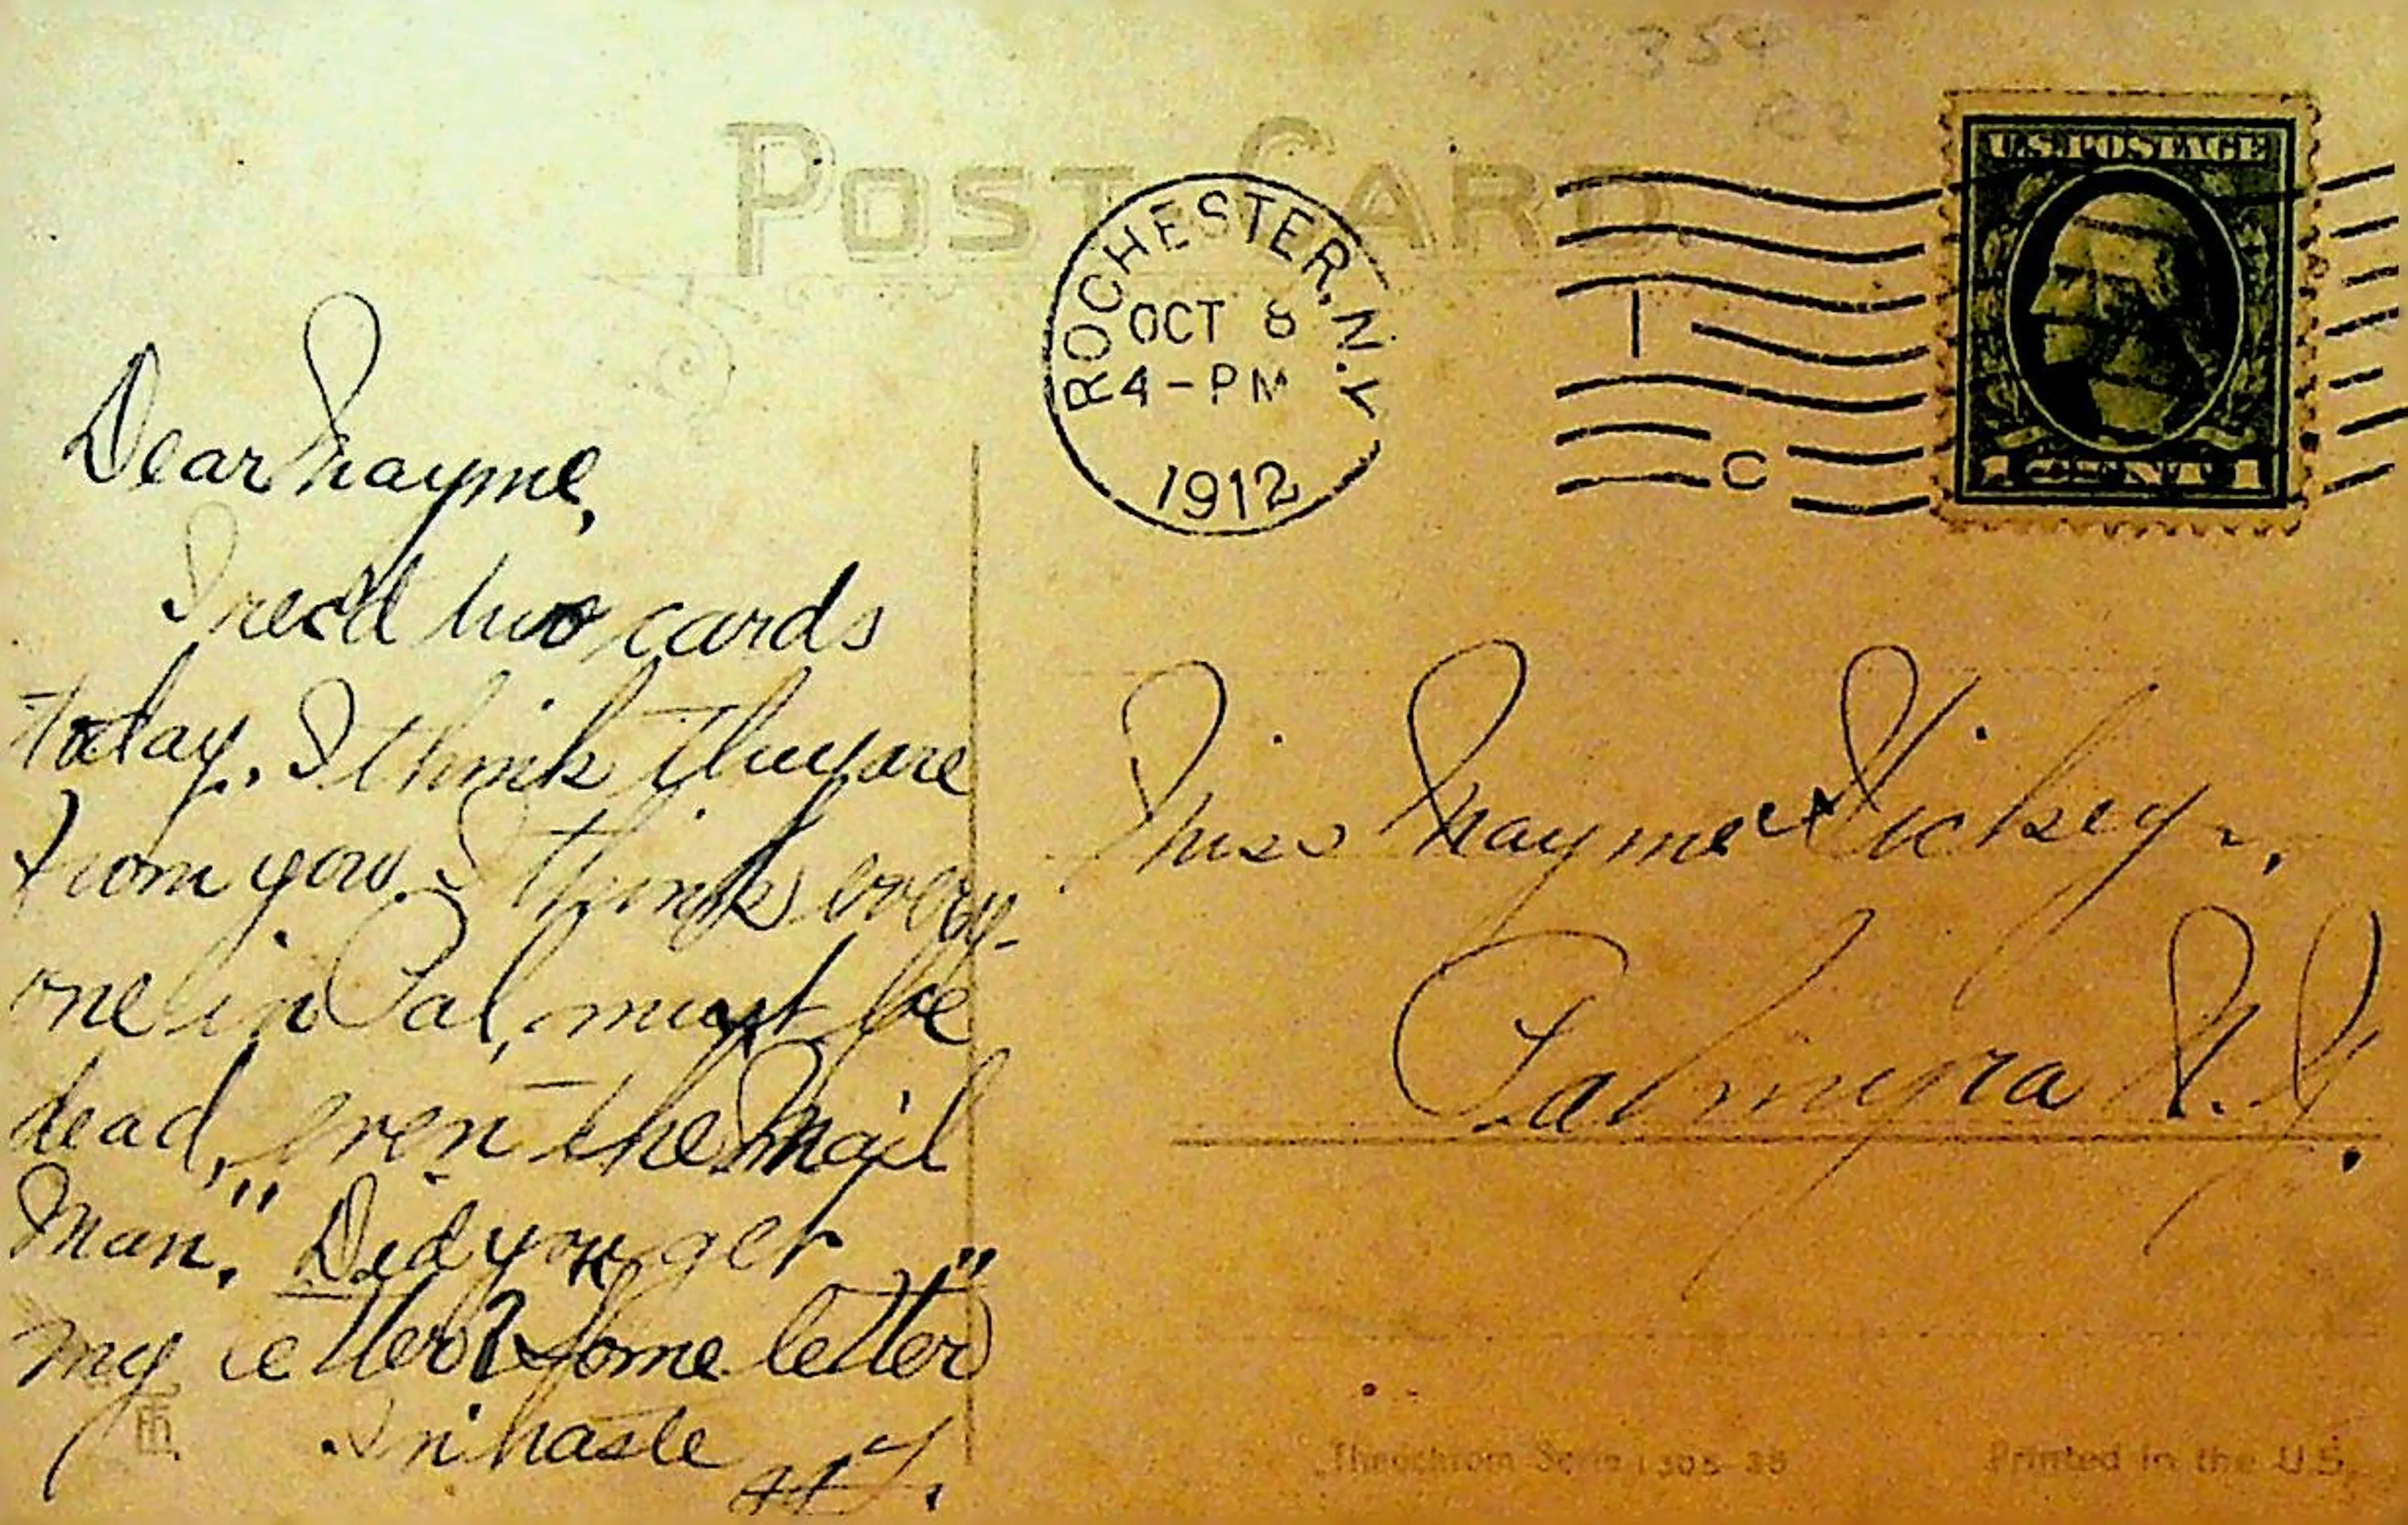 354
POST CARD.
ROCHESTER, N.Y.
OCT 8
4-PM
1912
1
C
U.S. POSTAGE
1 CENT 1
Dear Mayme,
I rec'd two cards
today. I think they are
from you. I think every-
one in Pal, must be
dead, "even the Mail
Man." Did you get
my letter? "Some letter"
In haste
Miss Mayme Hickey.,
Palmyra N.Y.
Theochrom Serie 1305-38
Printed in the U.S.